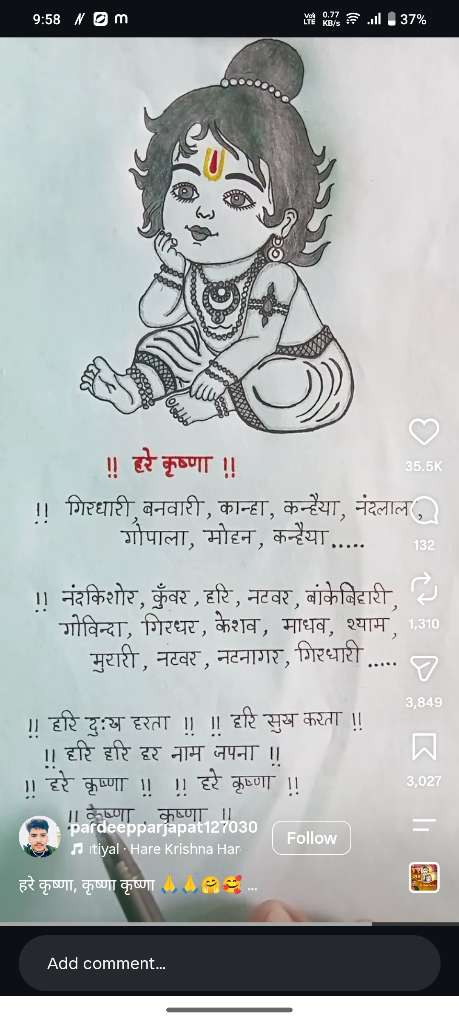 9:58
Vo) LTE 0.77 KB/s 37%
!! हरे कृष्णा !!
!! गिरधारी, बनवारी, कान्हा, कन्हैया, नंदलाल,
गोपाला, मोहन, कन्हैया.....
!! नंदकिशोर, कुँवर, हरि, नटवर, बांकेबिहारी,
गोविन्दा, गिरधर, केशव, माधव, श्याम,
मुरारी, नटवर, नटनागर, गिरधारी.....
!! हरि दुःख हरता !! !! हरि सुख करता !!
!! हरि हरि हर नाम जपना !!
!! हरे कृष्णा !! !! हरे कृष्णा !!
!! कृष्णा, कृष्णा !!
35.5K
132
1,310
3,849
3,027
pardeepparjapat127030
ıtiyal · Hare Krishna Har
Follow
हरे कृष्णा, कृष्णा कृष्णा 🙏🙏🤗🥰 ...
Add comment...